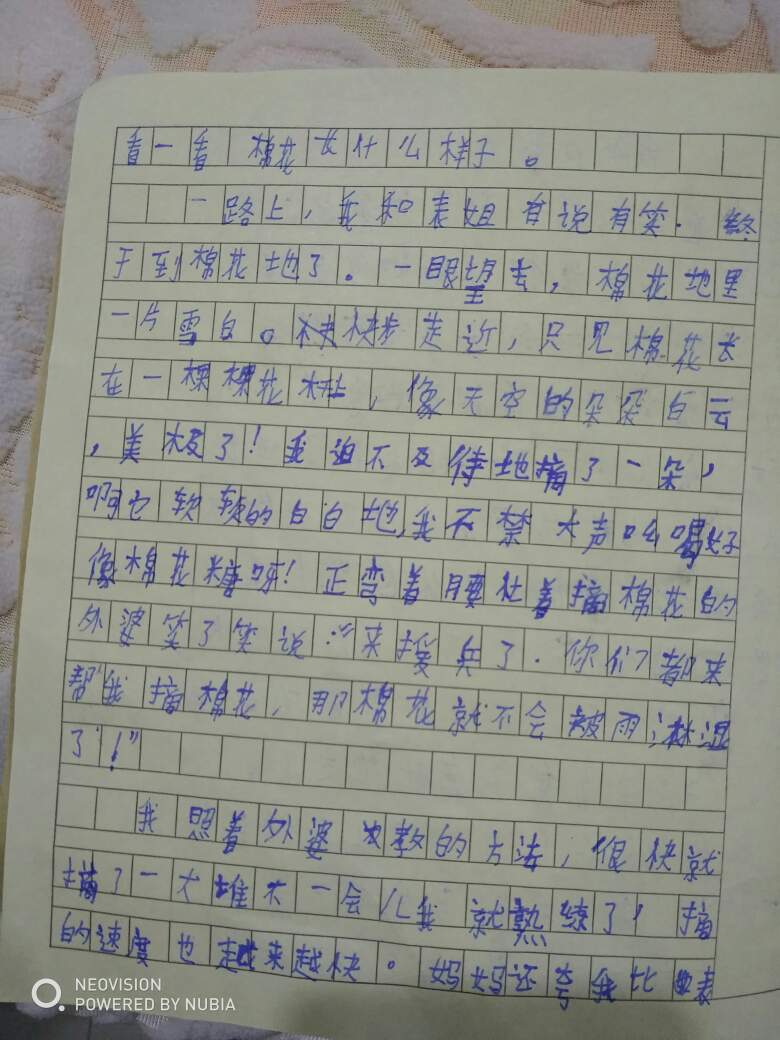 看一看棉花长什么样子。
一路上，我和表姐有说有笑.终
于到棉花地了。一眼望去，棉花地里
一片雪白。快步走近，只见棉花长
在一棵棵花枝，像天空的朵朵白云
，美极了！我迫不及待地摘了一朵，
啊它软软的白白地，我不禁大声叫喝好
像棉花糖呀！正弯着腰忙着摘棉花的
外婆笑了笑说：“来援兵了.你们都来
帮我摘棉花，那棉花就不会被雨淋湿
了！”
我照着外婆教的方法，很快就
摘了一大堆不一会儿我就熟练了！摘
的速度也越来越快。妈妈还夸我比表
NEOVISION
POWERED BY NUBIA